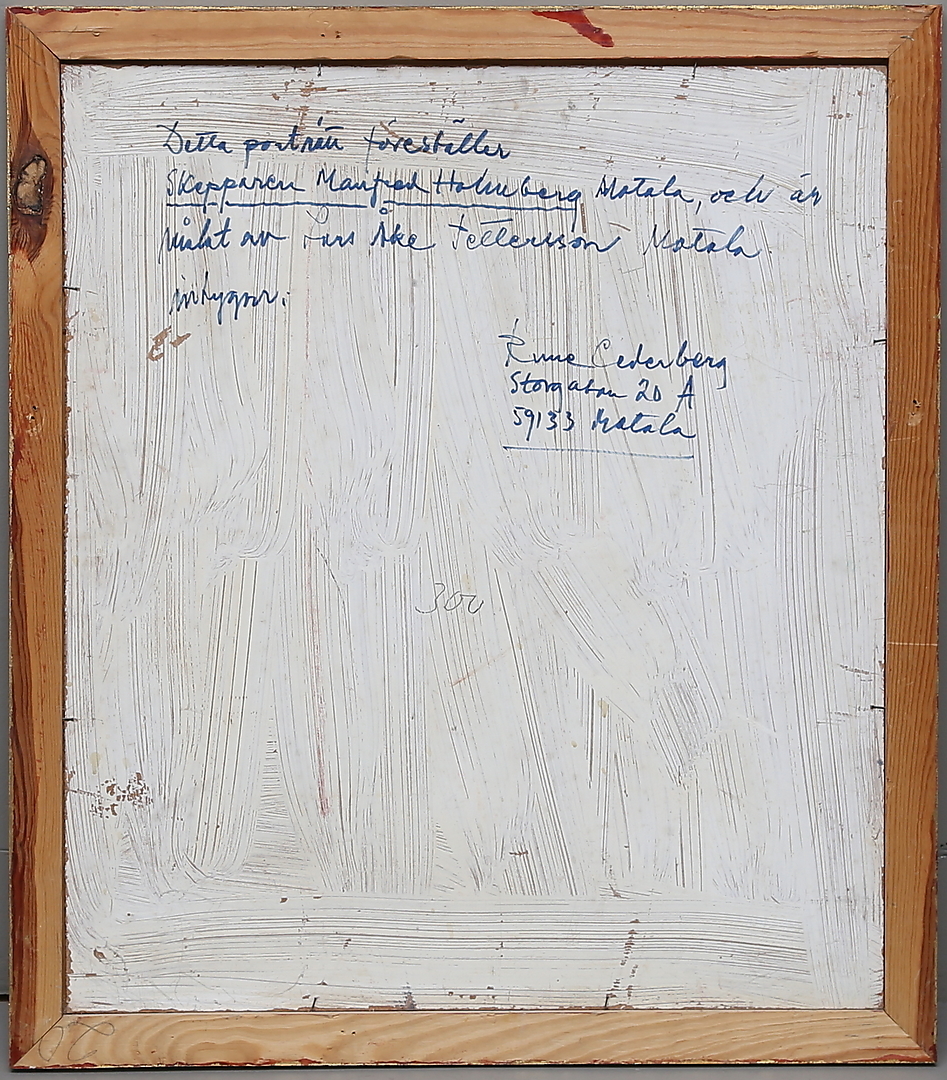 Detta porträtt föreställer
Skepparen Manfred Holmberg Motala, och är
målat av Lars Åke Pettersson Motala
intygar.
Rune Cederberg
Storgatan 20 A
59133 Motala
300